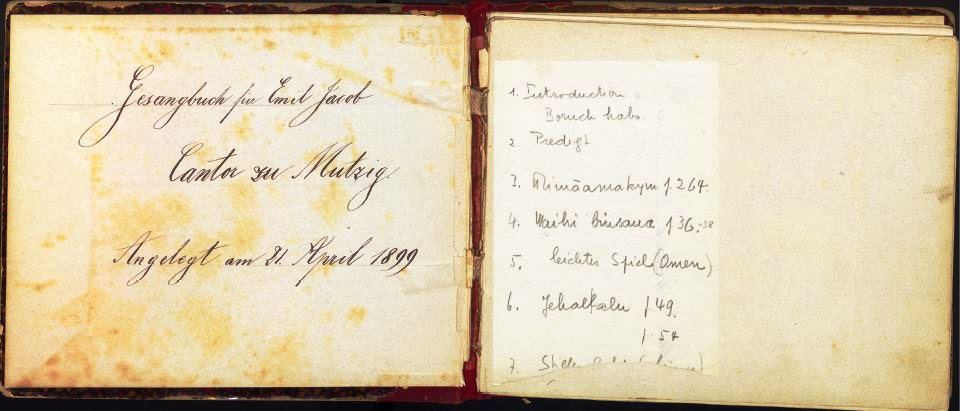 Gesangbuch für Emil Jacob
Cantor zu Mutzig.
Angelegt am 21. April 1899
1. Introduction
Boruch habo.
2 Predigt
3. Mimāamakym f. 264.
4. Waihi binsaua f. 36.-38
5. leichtes Spiel (Amen)
6. Jehalkelu f. 49.
f. 54
7.